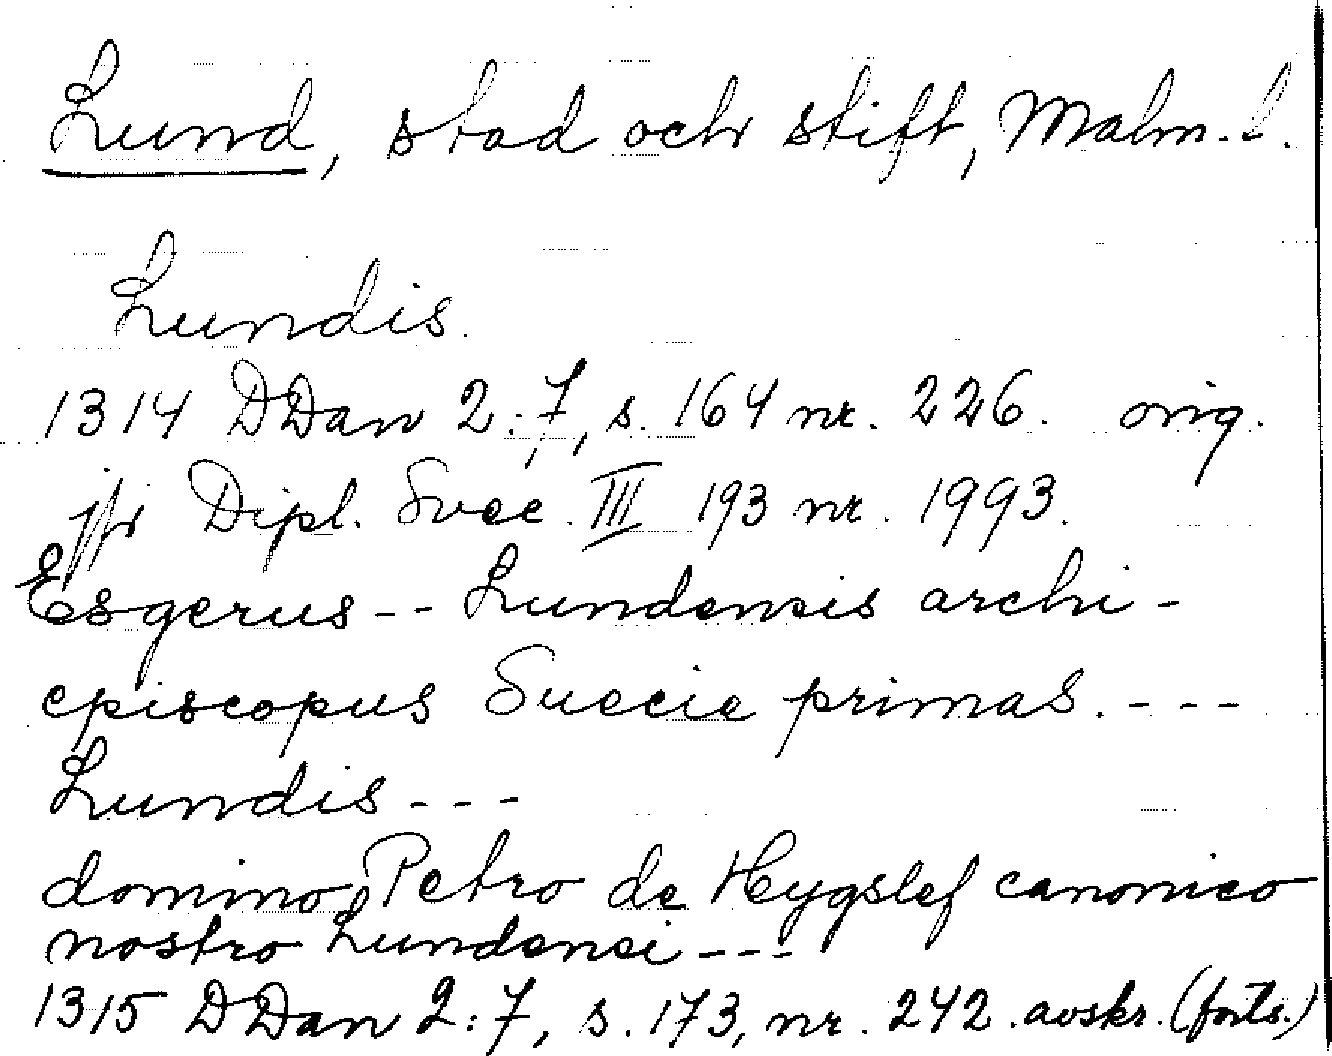 Lund, stad och stift, Malm. l.
Lundis.
1314 DDan 2:7, s. 164 nr. 226. orig.
jfr Dipl. Svec. III 193 nr. 1993.
Esgerus -- Lundensis archi-
episcopus Suecie primas. ---
Lundis ---
domino Petro de Hygslef canonico
nostro Lundensi ---
1315 DDan 2:7, s. 173, nr. 242. avskr. (forts.)